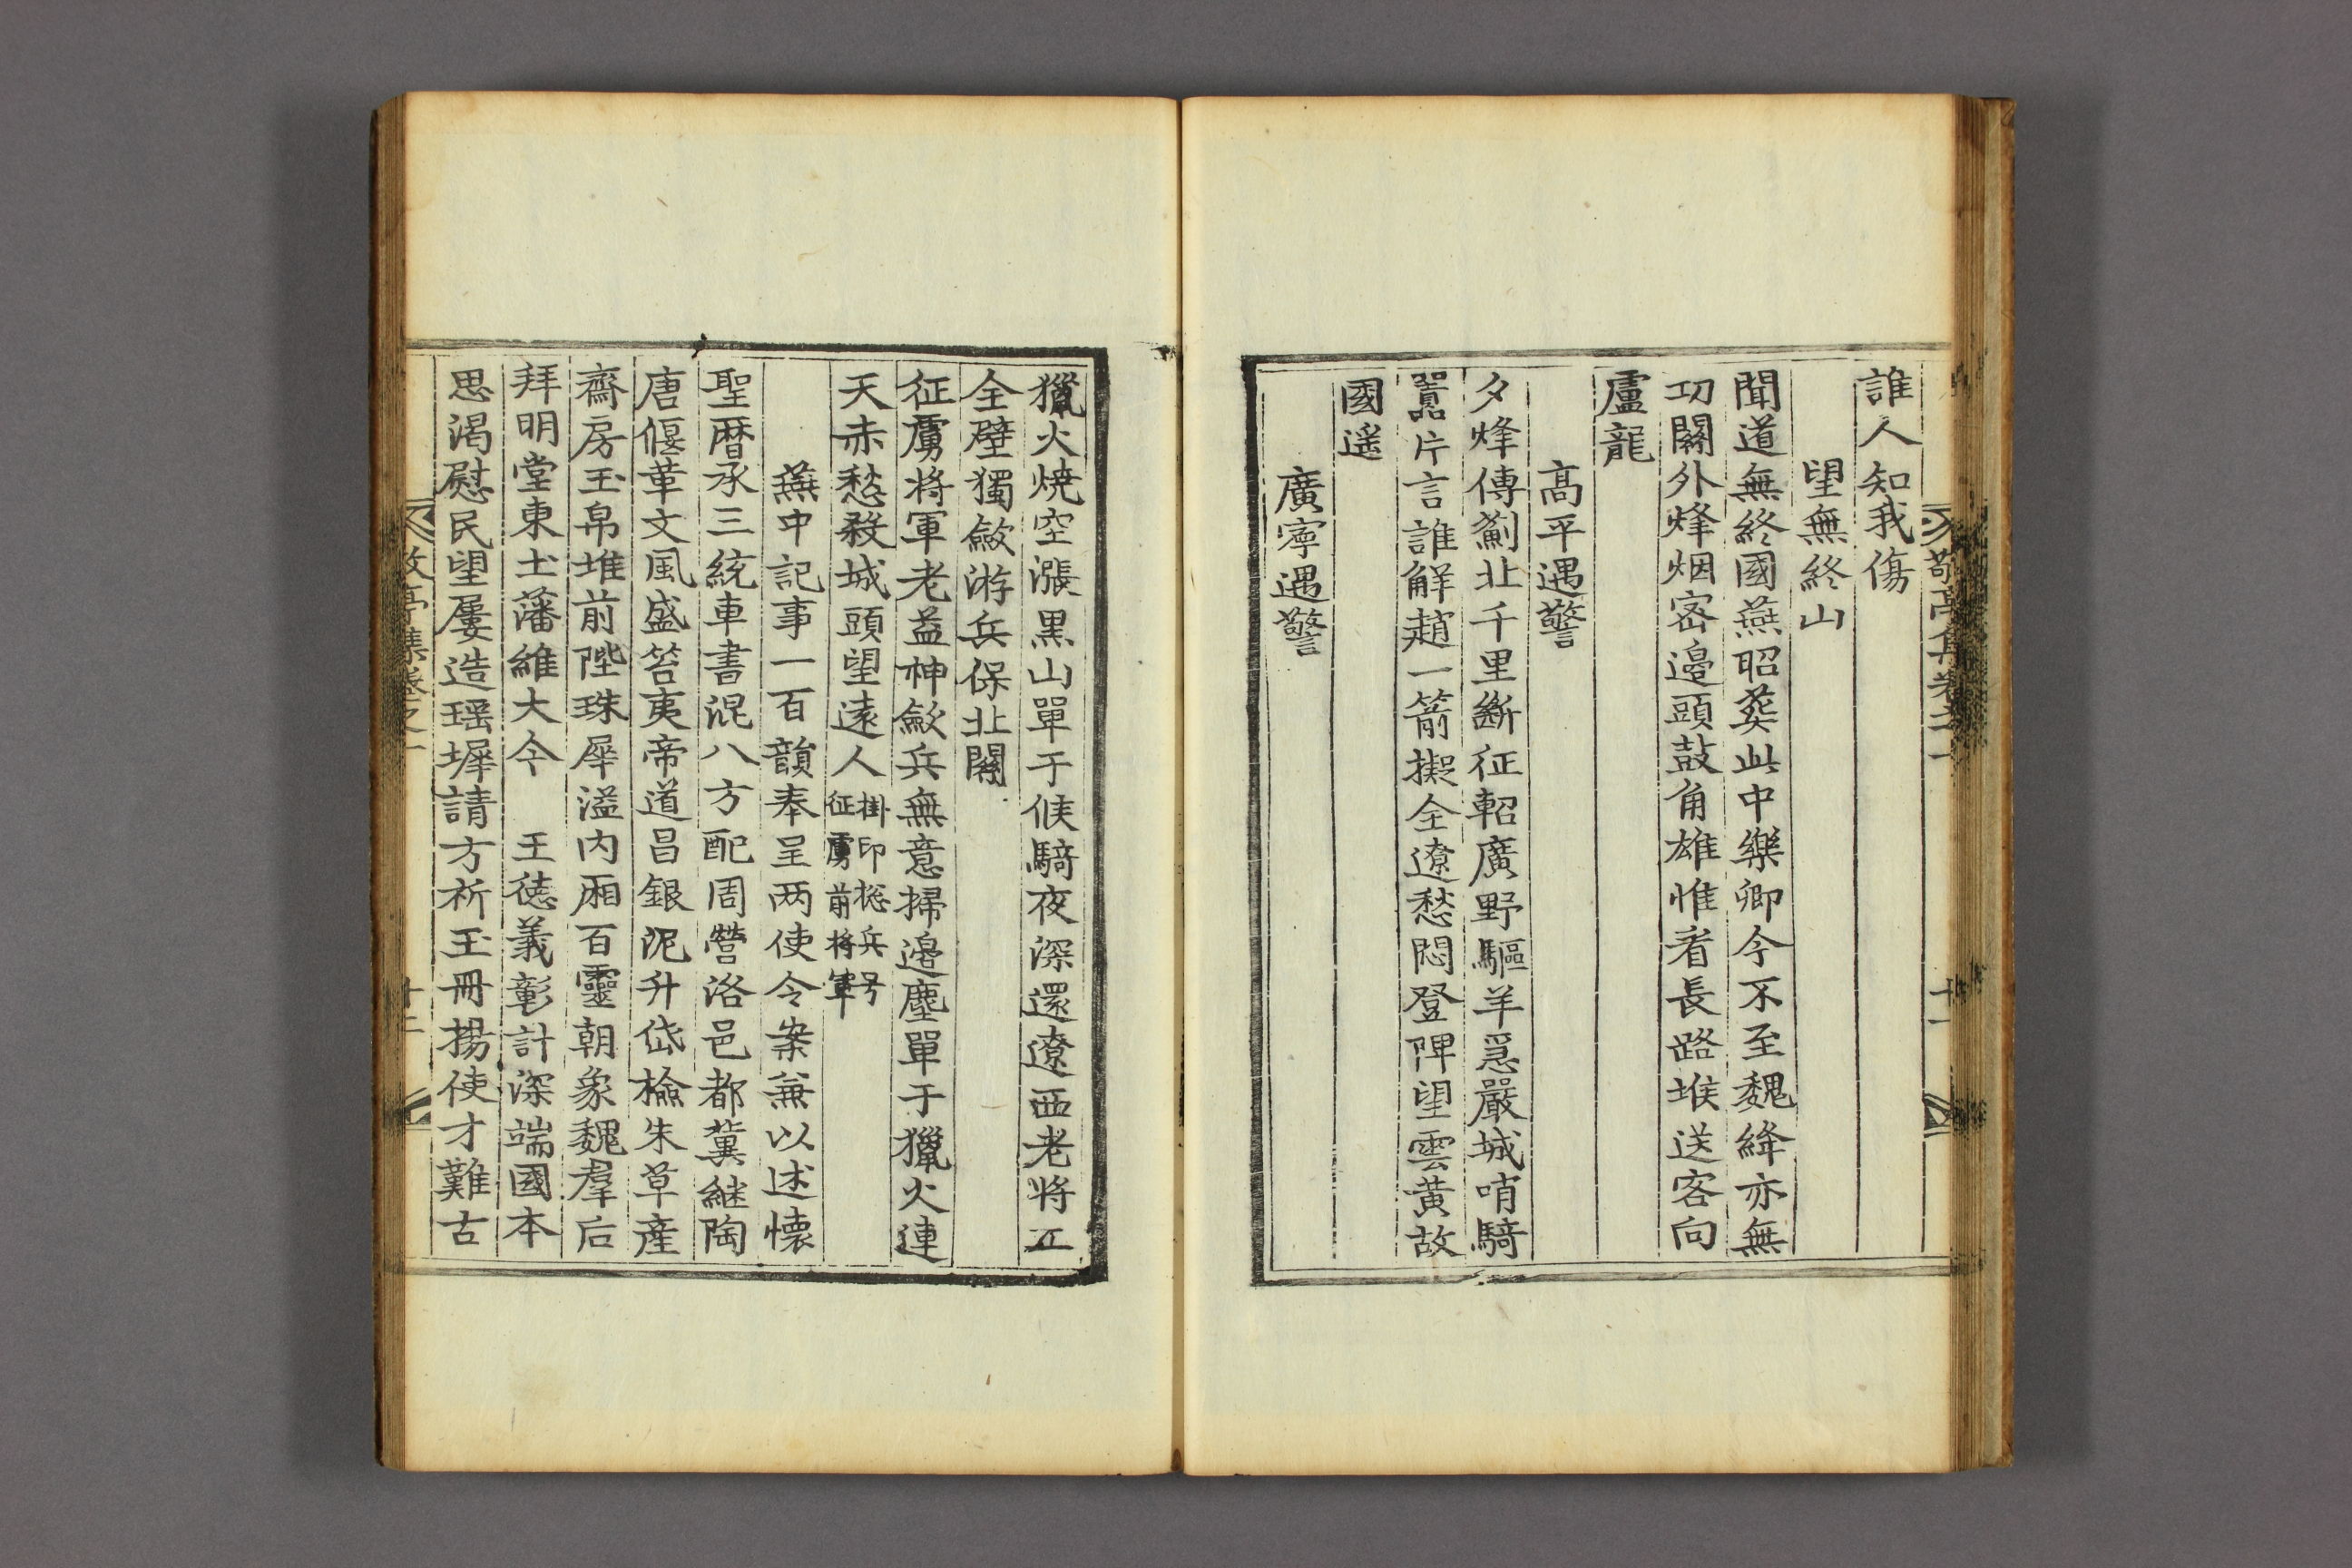 敬亭集卷之一
十一
誰人知我傷
望無終山
聞道無終國燕昭葬此中樂卿今不至魏絳亦無
功關外烽烟密邊頭鼓角雄惟看長路堠送客向
盧龍
高平遇警
夕烽傳薊北千里斷征軺廣野驅羊急嚴城哨騎
嚻片言誰解趙一箭擬全遼愁悶登陴望雲黃故
國遥
廣寧遇警
獵火燒空漲黑山單于候騎夜深還遼西老將正
全壁獨斂游兵保北關
征虜將軍老益神斂兵無意掃邊塵單于獵火連
天赤愁殺城頭望遠人掛印揔兵号征虜前将軍
燕中記事一百韻奉呈两使令案兼以述懷
聖曆承三統車書混八方配周營洛邑都冀継陶
唐偃革文風盛笞夷帝道昌銀泥升岱檢朱草産
齋房玉帛堆前陛珠犀溢内廂百靈朝象魏羣后
拜明堂東土藩維大今 王德義彰計深端國本
思渴慰民望屢造瑶墀請方祈玉冊揚使才難古
敬亭集卷之一
十二